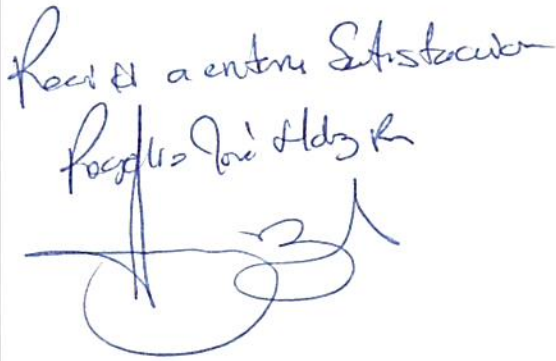 Recibí a entera Satisfacción
Rogelio José Hdz R